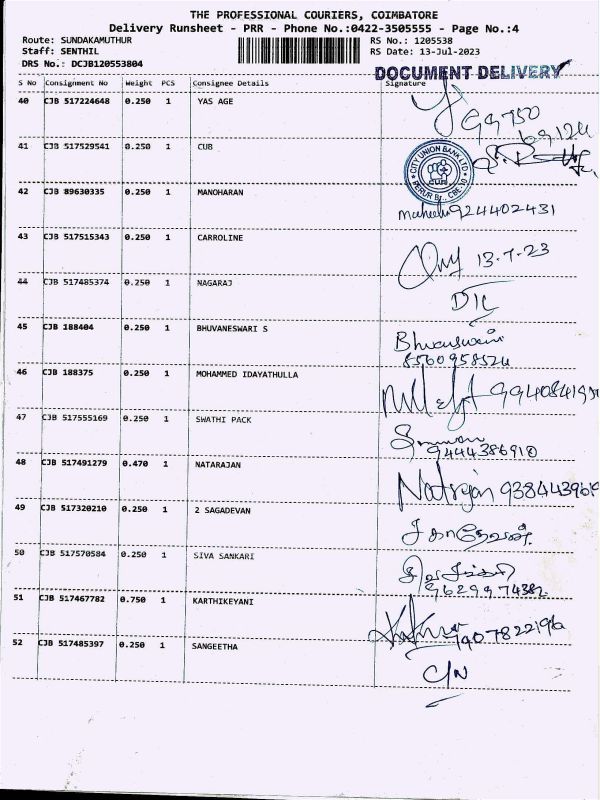 THE PROFESSIONAL COURIERS, COIMBATORE
Delivery Runsheet - PRR - Phone No.:0422-3505555 - Page No.:4
Route: SUNDAKAMUTHUR RS No.: 1205538
Staff: SENTHIL RS Date: 13-Jul-2023
DRS No.: DCJB120553804
DOCUMENT DELIVERY
S No Consignment No Weight PCS Consignee Details Signature
40 CJB 517224648 0.250 1 YAS AGE
41 CJB 517529541 0.250 1 CUB
CITY UNION BANK LTD
CUB
42 CJB 89630335 0.250 1 MANOHARAN 924402431
43 CJB 517515343 0.250 1 CARROLINE 13.7.23
44 CJB 517485374 0.250 1 NAGARAJ D/L
45 CJB 188404 0.250 1 BHUVANESWARI S
8560958524
46 CJB 188375 0.250 1 MOHAMMED IDAYATHULLA
47 CJB 517555169 0.250 1 SWATHI PACK
9444386910
48 CJB 517491279 0.470 1 NATARAJAN Natrajan
49 CJB 517320210 0.250 1 2 SAGADEVAN சகாதேவன்.
50 CJB 517570584 0.250 1 SIVA SANKARI சிவசங்கரி
9629974382
51 CJB 517467782 0.750 1 KARTHIKEYANI
52 CJB 517485397 0.250 1 SANGEETHA C/N